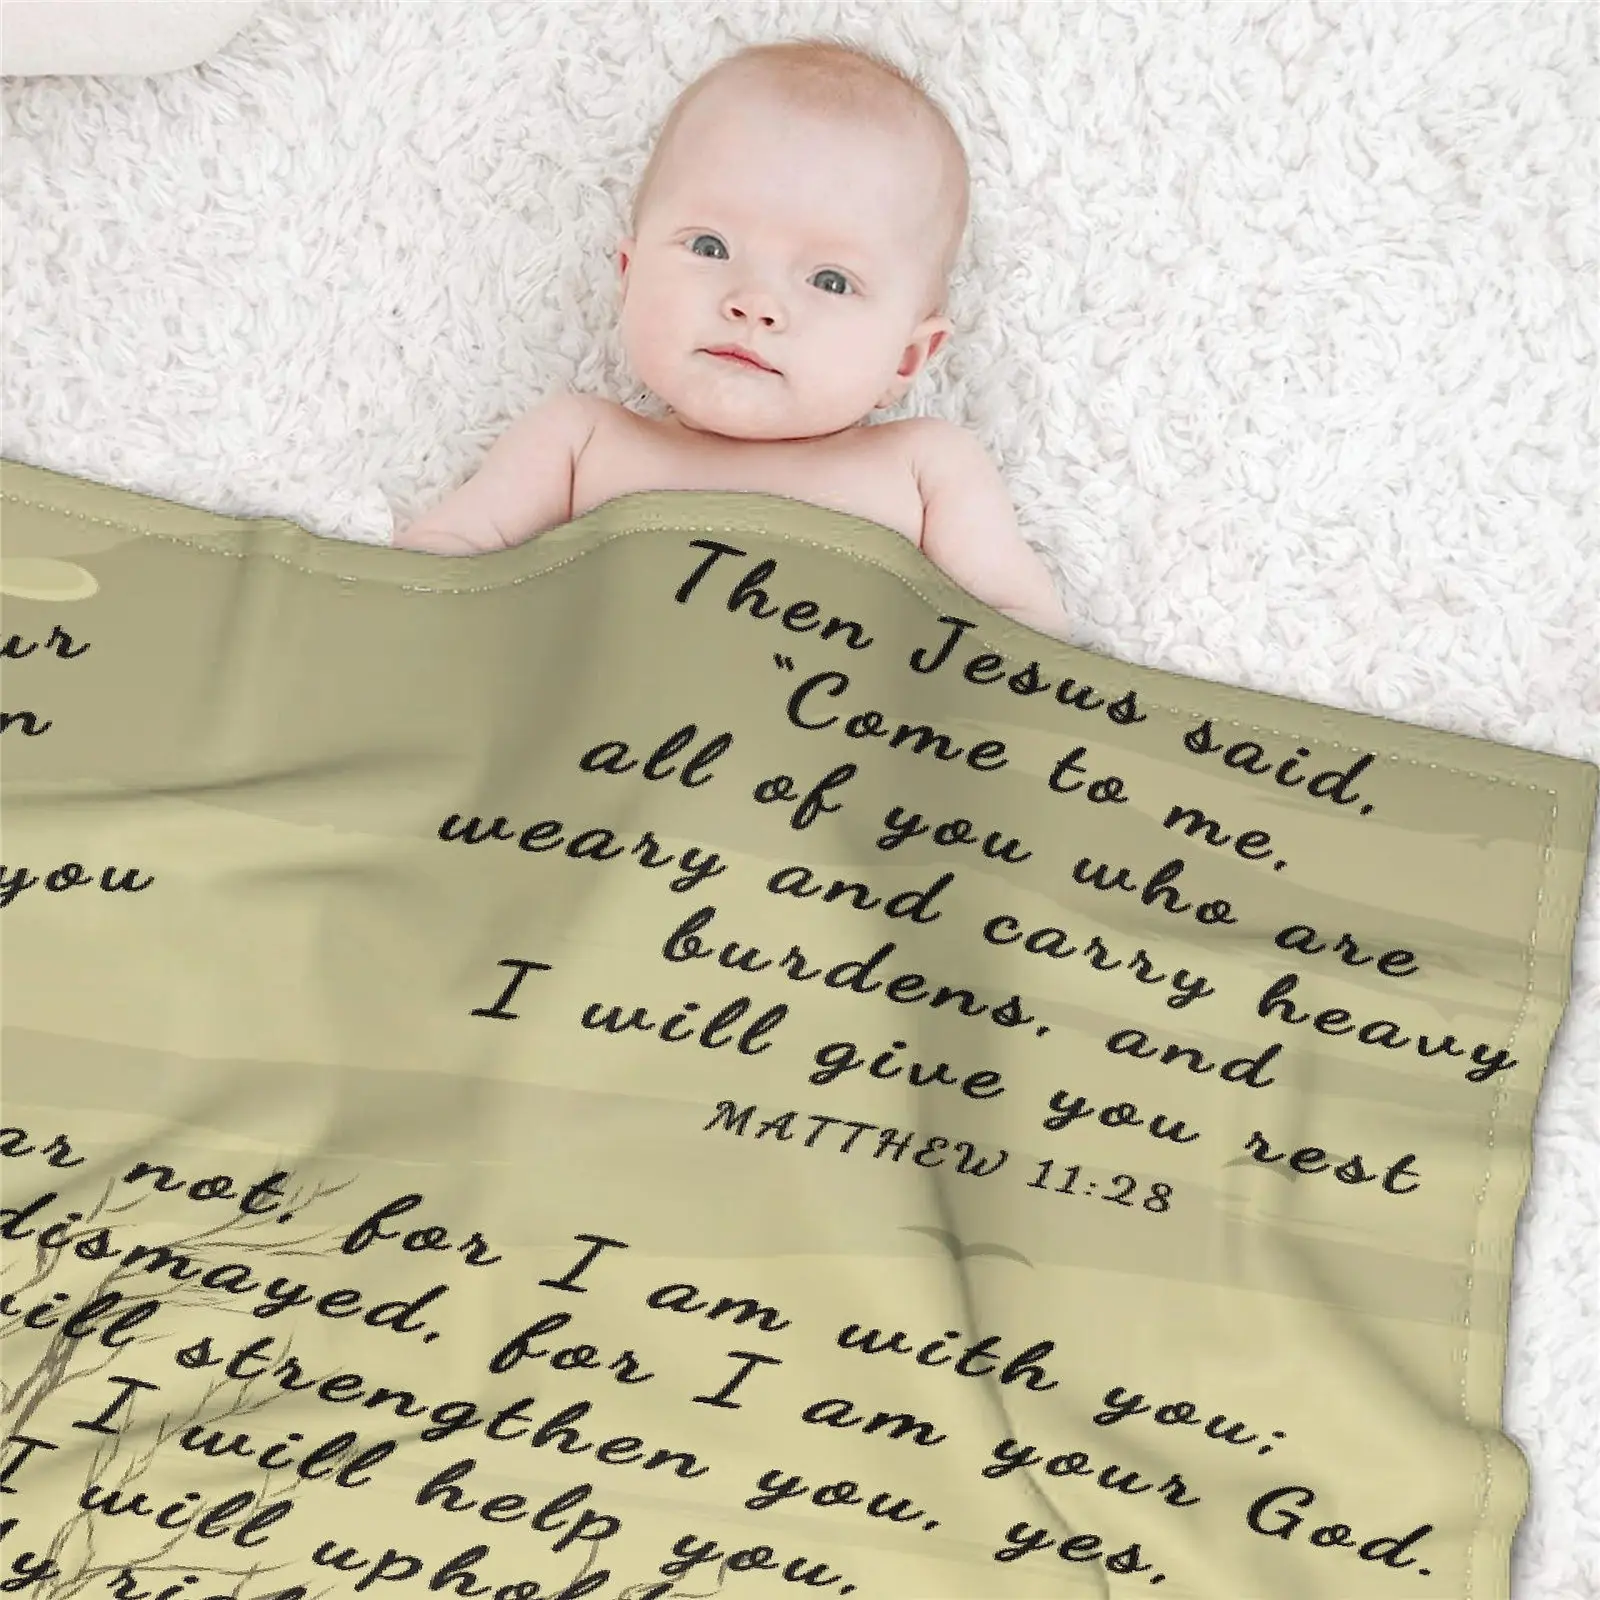 Then Jesus said,
"Come to me,
all of you who are
weary and carry heavy
burdens, and
I will give you rest
MATTHEW 11:28
you
not, for I am with you;
dismayed, for I am your God.
strengthen you, yes,
I will help you,
I will